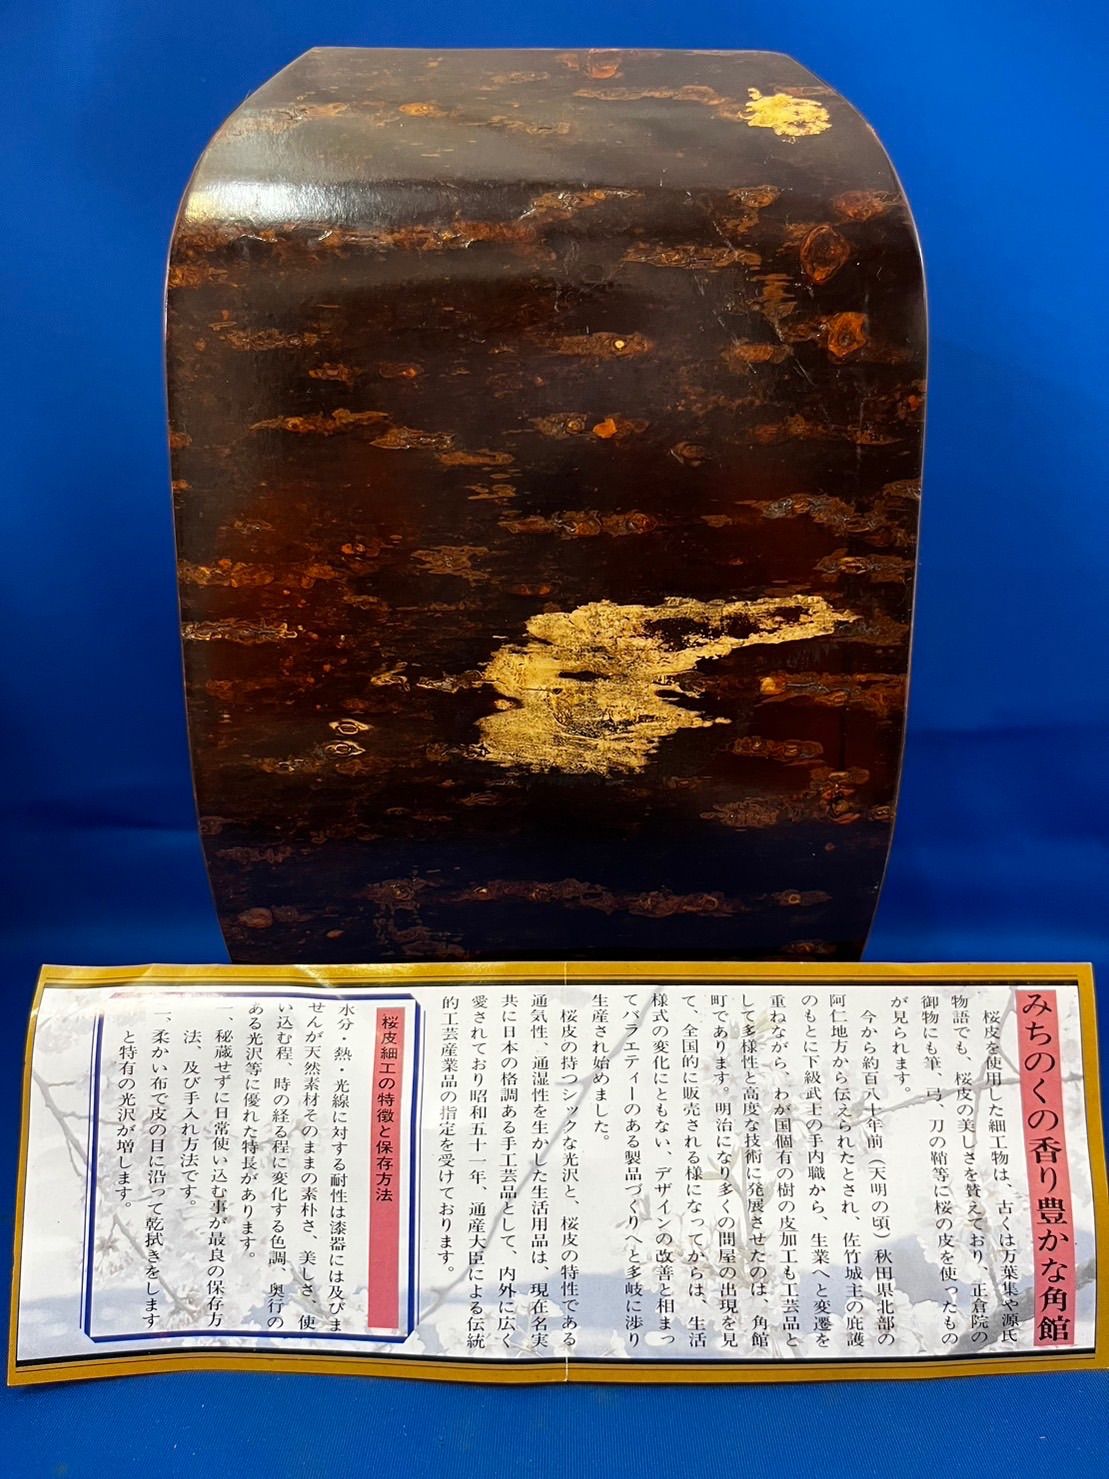 みちのくの香り豊かな角館
桜皮を使用した細工物は、古くは万葉集や源氏
物語でも、桜皮の美しさを賛えており、正倉院の
御物にも筆、弓、刀の鞘等に桜の皮を使ったもの
が見られます。
今から約百八十年前（天明の頃）秋田県北部の
阿仁地方から伝えられたとされ、佐竹城主の庇護
のもとに下級武士の手内職から、生業へと変遷を
重ねながら、わが国個有の樹の皮加工も工芸品と
して多様性と高度な技術に発展させたのは、角館
町であります。明治になり多くの問屋の出現を見
て、全国的に販売される様になってからは、生活
様式の変化にともない、デザインの改善と相まっ
てバラエティーのある製品づくりへと多岐に渉り
生産され始めました。
桜皮の持つシックな光沢と、桜皮の特性である
通気性、通湿性を生かした生活用品は、現在名実
共に日本の格調ある手工芸品として、内外に広く
愛されており昭和五十一年、通産大臣による伝統
的工芸産業品の指定を受けております。
桜皮細工の特徴と保存方法
水分・熱・光線に対する耐性は漆器には及びま
せんが天然素材そのままの素朴さ、美しさ、使
い込む程、時の経る程に変化する色調、奥行の
ある光沢等に優れた特長があります。
一、秘蔵せずに日常使い込む事が最良の保存方
法、及び手入れ方法です。
一、柔かい布で皮の目に沿って乾拭きをします
と特有の光沢が増します。